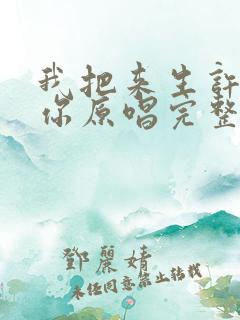 我把来生許
你原唱完整
鄧麗婧
未经同意禁止转载